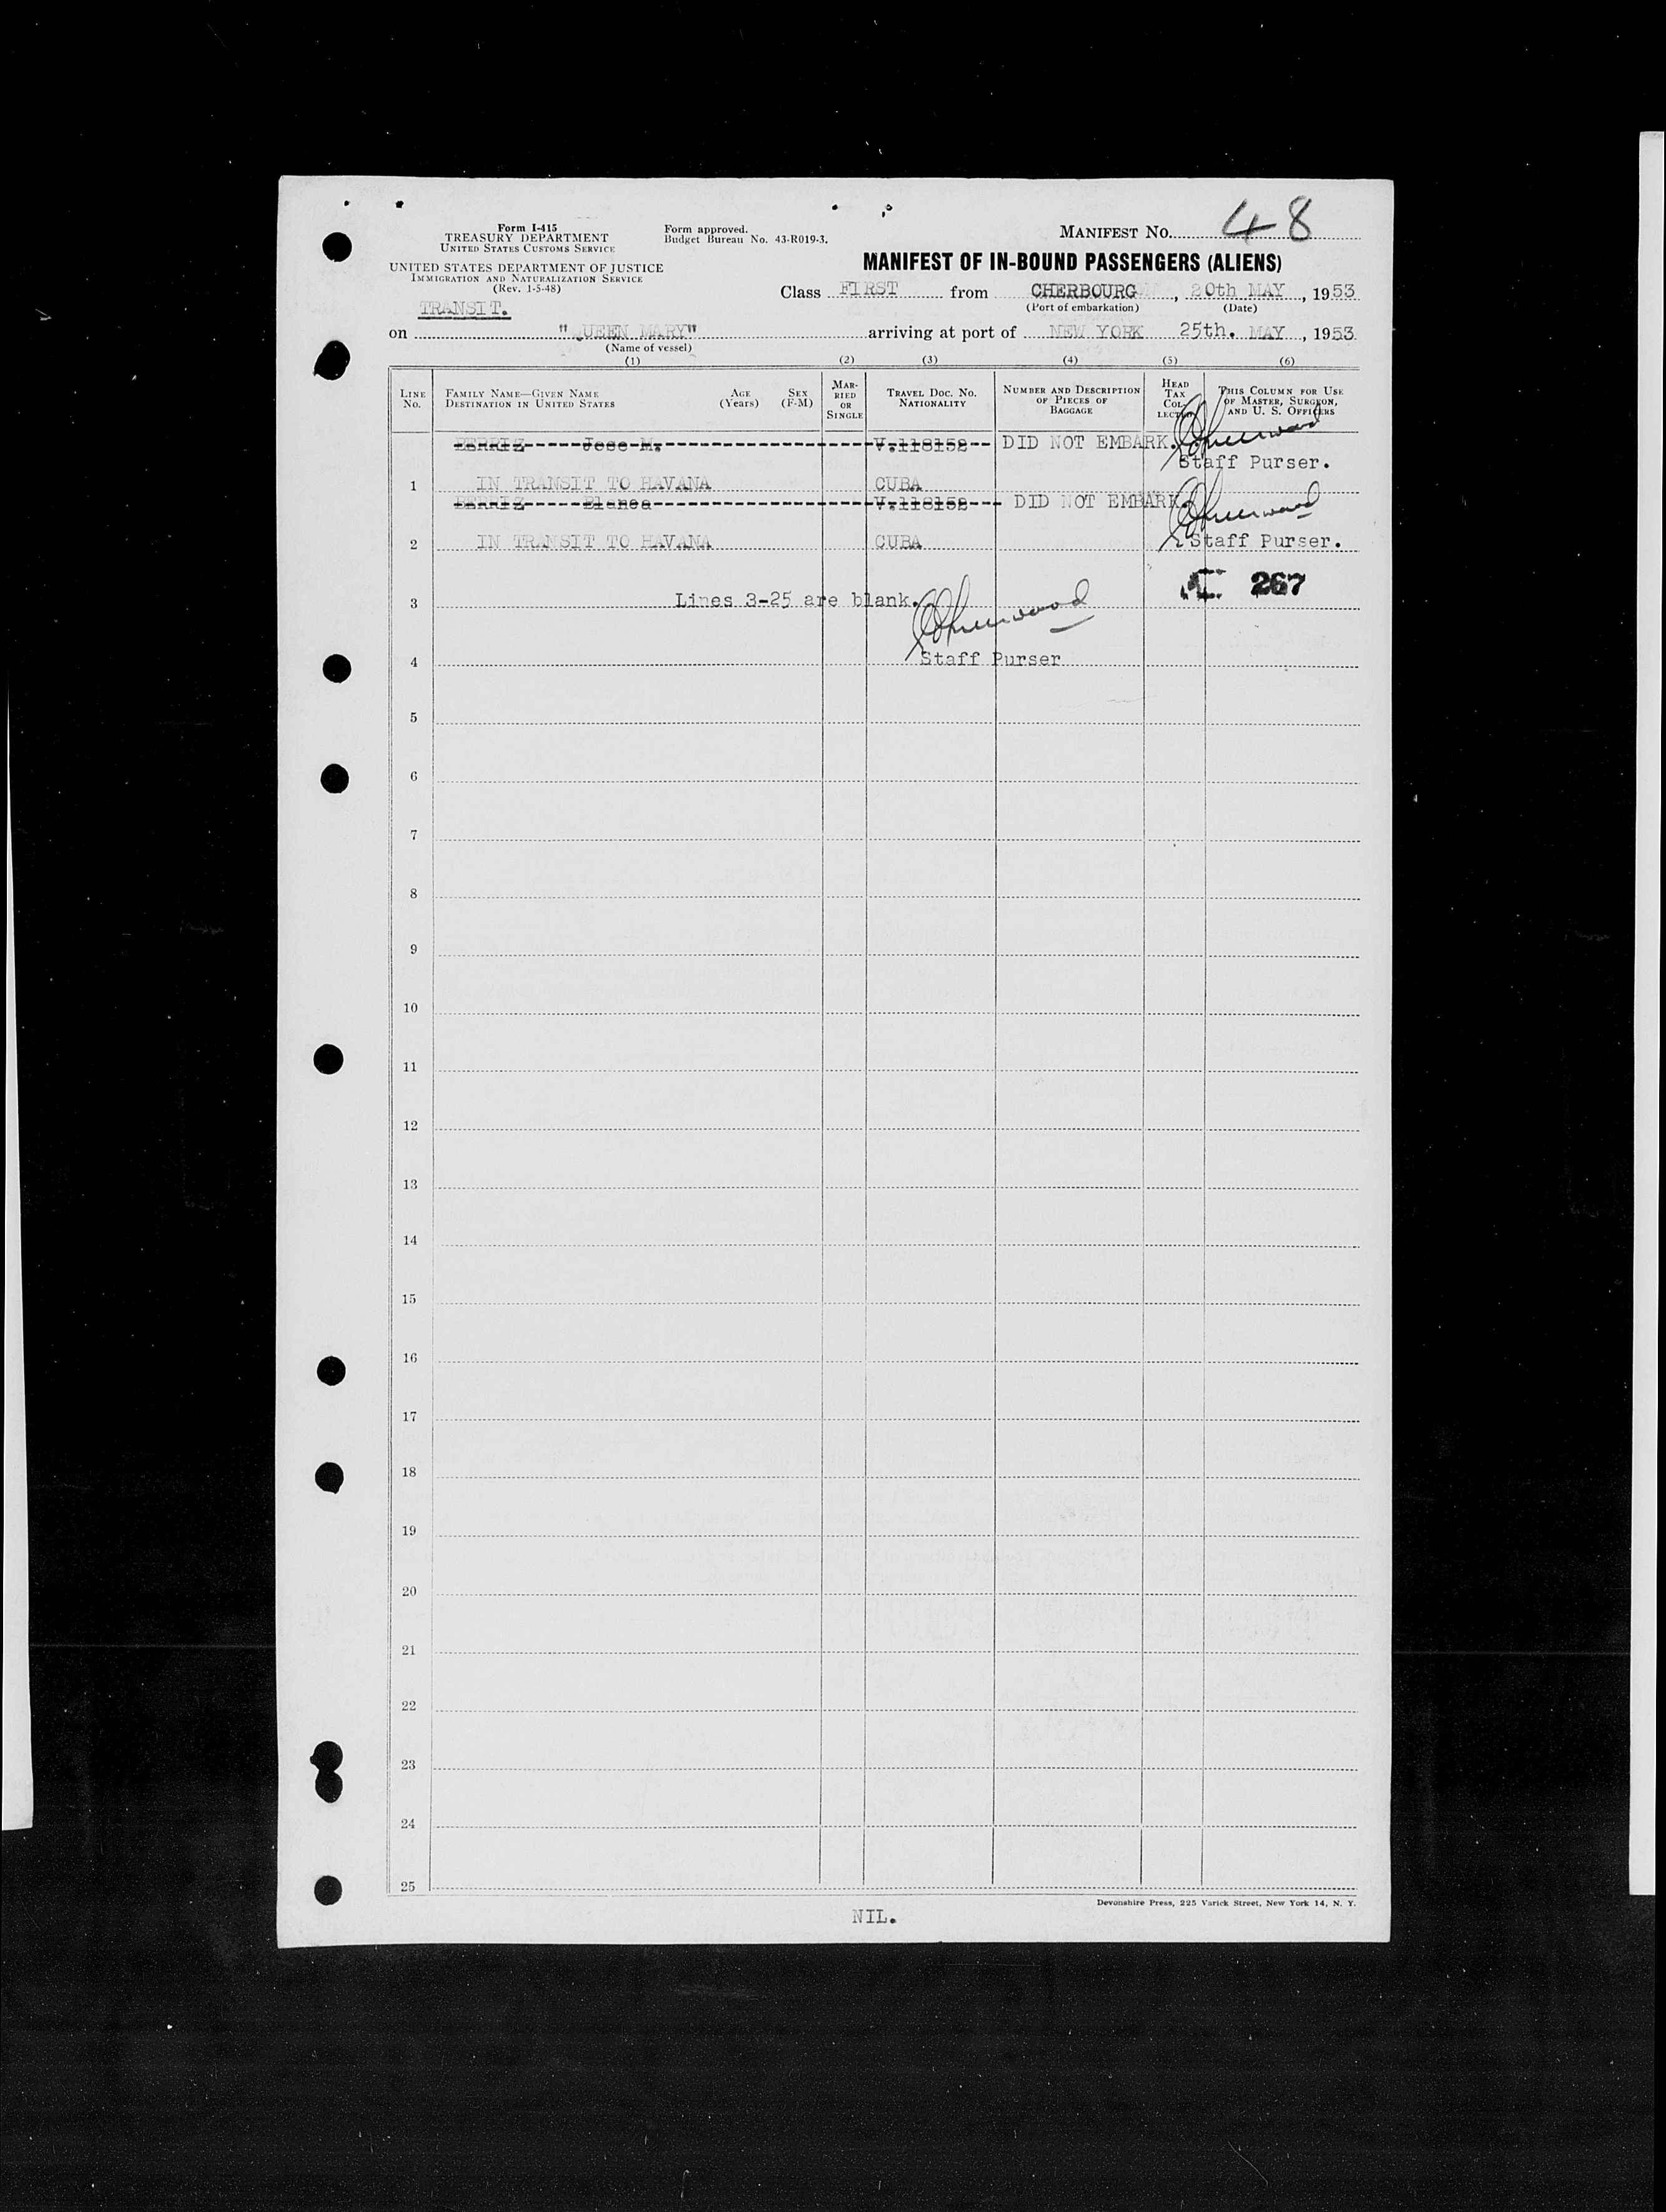 Form I-415
TREASURY DEPARTMENT
UNITED STATES CUSTOMS SERVICE
UNITED STATES DEPARTMENT OF JUSTICE
IMMIGRATION AND NATURALIZATION SERVICE
(Rev. 1-5-48)
TRANSIT.
Form approved.
Budget Bureau No. 43-R019-3.
MANIFEST No. 48
MANIFEST OF IN-BOUND PASSENGERS (ALIENS)
Class FIRST from CHERBOURG, 20th MAY, 1953
(Port of embarkation) (Date)
on "QUEEN MARY" arriving at port of NEW YORK 25th. MAY, 1953
(Name of vessel)
(1) (2) (3) (4) (5) (6)
LINE No. FAMILY NAME—GIVEN NAME DESTINATION IN UNITED STATES AGE (Years) SEX (F-M) MARRIED OR SINGLE TRAVEL DOC. No. NATIONALITY NUMBER AND DESCRIPTION OF PIECES OF BAGGAGE HEAD TAX COLLECTED THIS COLUMN FOR USE OF MASTER, SURGEON, AND U. S. OFFICERS
BERRIZ Jose M. V.118152 DID NOT EMBARK.
Staff Purser.
1 IN TRANSIT TO HAVANA CUBA
BERRIZ Blanca V.118152 DID NOT EMBARK.
2 IN TRANSIT TO HAVANA CUBA Staff Purser.
267
3 Lines 3-25 are blank.
4 Staff Purser
5
6
7
8
9
10
11
12
13
14
15
16
17
18
19
20
21
22
23
24
25
Devonshire Press, 225 Varick Street, New York 14, N. Y.
NIL.